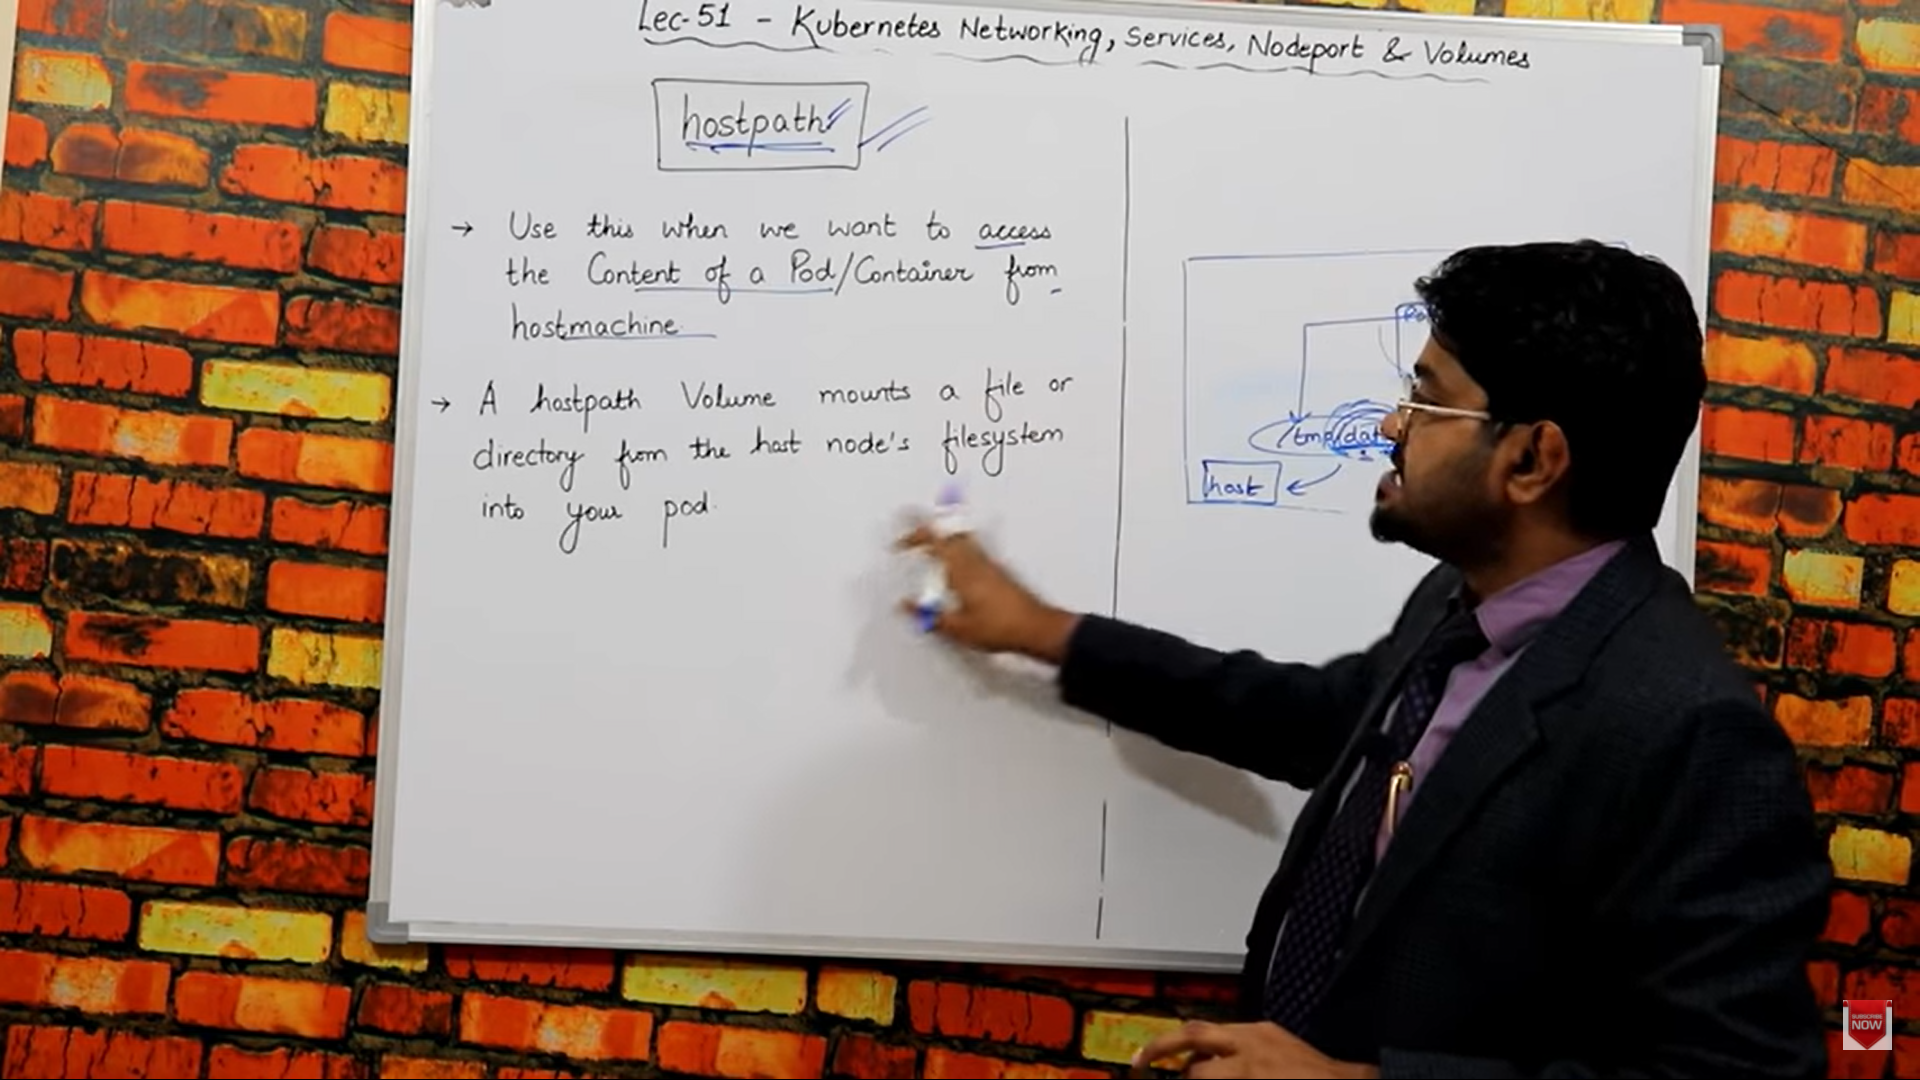 Lec-51 - Kubernetes Networking, Services, Nodeport & Volumes
hostpath
→ Use this when we want to access
the Content of a Pod/Container from
hostmachine.
→ A hostpath Volume mounts a file or
directory from the host node's filesystem
into your pod.
/tmp/dat
host
SUBSCRIBE
NOW